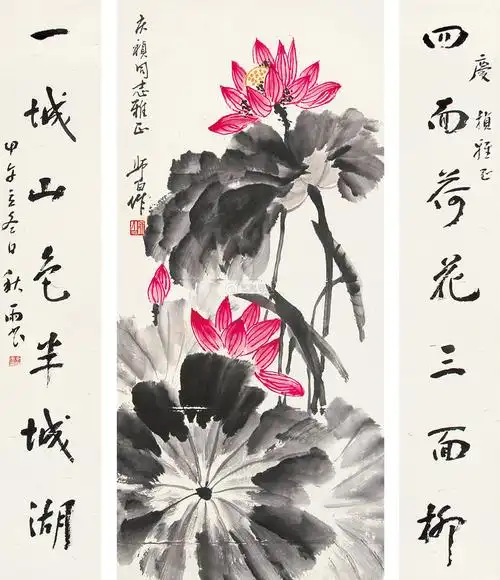 四面荷花三面柳
慶禎雅正
庆祯同志雅正
师白作
一城山色半城湖
甲午立冬日秋雨书